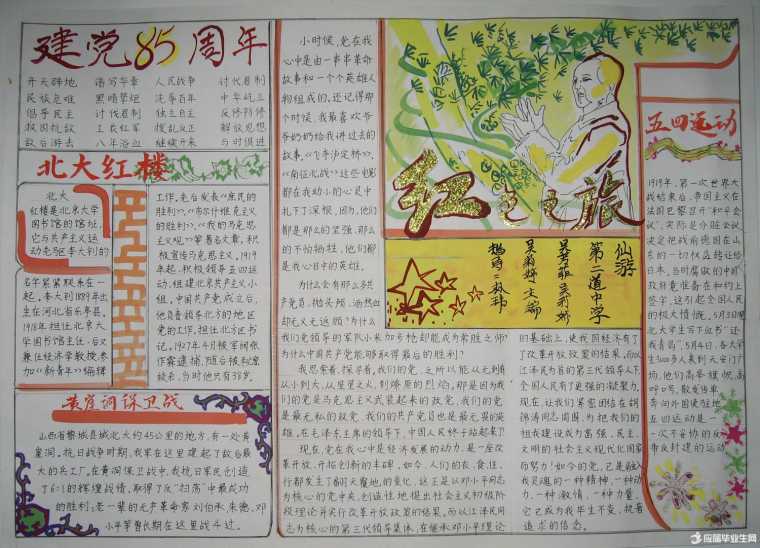 建党85周年
开天辟地 谱写华章 人民战争 讨代君制
民族危难 黑暗禁烟 洗辱百年 中华屹立
倡导民主 讨伐君制 独立自主 反修防修
救国抗敌 工农红军 拨乱反正 解放思想
敌后游击 八年浴血 继续开来 与时俱进
北大红楼
北大
红楼是北京大学
图书馆的馆址，
它与共产主义运
动先驱李大钊的
名字紧紧联系在一
起。李大钊1889年出生
在河北省乐亭县。
1918年担任北京大学
图书馆主任，后又
兼任经济学教授参
加《新青年》编辑
工作。先后发表《庶民的
胜利》、《布尔什维克主义
的胜利》、《我的马克思
主义观》等著名文章，积
极宣传马克思主义。1919
年起，积极领导五四运
动，组建北京共产主义小
组，中国共产党成立后，
他负责领导北方的地区
党的工作，担任北方区书
记。1927年4月被军阀张
作霖逮捕，随后被秘密
绞杀，当时他只有38岁。
黄崖洞保卫战
山西省黎城县城北大约45公里的地方，有一处黄
崖洞，抗日战争时期，我军在这里建起了敌后最
大的兵工厂。在黄洞保卫战中，我抗日军民创造
了6:1的辉煌战绩，取得了反“扫荡”中最成功
的胜利；老一辈的无产革命家刘伯承、朱德、邓
小平等曾长期在这里战斗过。
小时候，党在我
心中是由一串串革命
故事和一个个英雄人
物组成的，还记得那
个时候，我最喜欢爷
爷奶奶给我讲过去的
故事，《飞夺泸定桥》、
《南征北战》这些电影
都在我幼小的心灵中
扎下了深根，因为，他们
都是那么的坚强、那么
的不怕牺牲，他们都
是我心目中的英雄。
为什么会有那么多共
产党员，抛头颅、洒热血
却无义无返顾？为什么
我们党领导的军队小米加步枪却能成为常胜之师？
为什么中国共产党能够取得最后的胜利？
我思索着，探寻着，我们的党，之所以能从无到有
从小到大，从星星之火，到燎原的烈焰，那是因为我
们的党是马克思主义武装起来的政党，我们的党
是最无私的政党，我们的共产党员也是最无畏的英
雄，在毛泽东主席的领导下，中国人民终于站起来了！
现在，党在我心中是经济发展的动力，是一座改
革开放，开拓创新的丰碑。如今，人们的衣、食、住、
行都发生了翻天覆地的变化，这正是以邓小平同志
为核心的党中央创造性地提出社会主义初极阶
段理论并实行改革开放政策的结果。而以江泽民同
志为核心的第三代领导集体，在继承邓小平理论
红色之旅
仙游
第二道中学
的基础上，使我国经济有了
了改革开放政策的结果，而以
江泽民为首的第三代领导人下，
全国人民有了更强的凝聚力，
现在，让我们紧密团结在胡
锦涛同志周围，为把我们的
祖国建设成为富强、民主、
文明的社会主义现代化国家
而努力！如今的党，已是融入
我灵魂的一种精神，一种动
力，一种激情，一种力量，
它已成为我毕生不变，执着
追求的信念。
五四运动
1919年，第一次世界大
战结束后，帝国主义在
法国巴黎召开“和平会
议”，实际是分赃会议
决定把战前德国在山
东的一切权益转让给
日本，当时腐败的中国
政府竟准备在和约上
签字，这引起全国人民
的极大愤慨。5月3日
北大学生写下血书“还
我青岛”，5月4日，各大学
生3000多人来到天安门广
场，他们高举横帜，高
呼口号，散发传单
奔向外国使馆地
五四运动是一
一次不妥协的反
帝反封建的运动
应届毕业生网